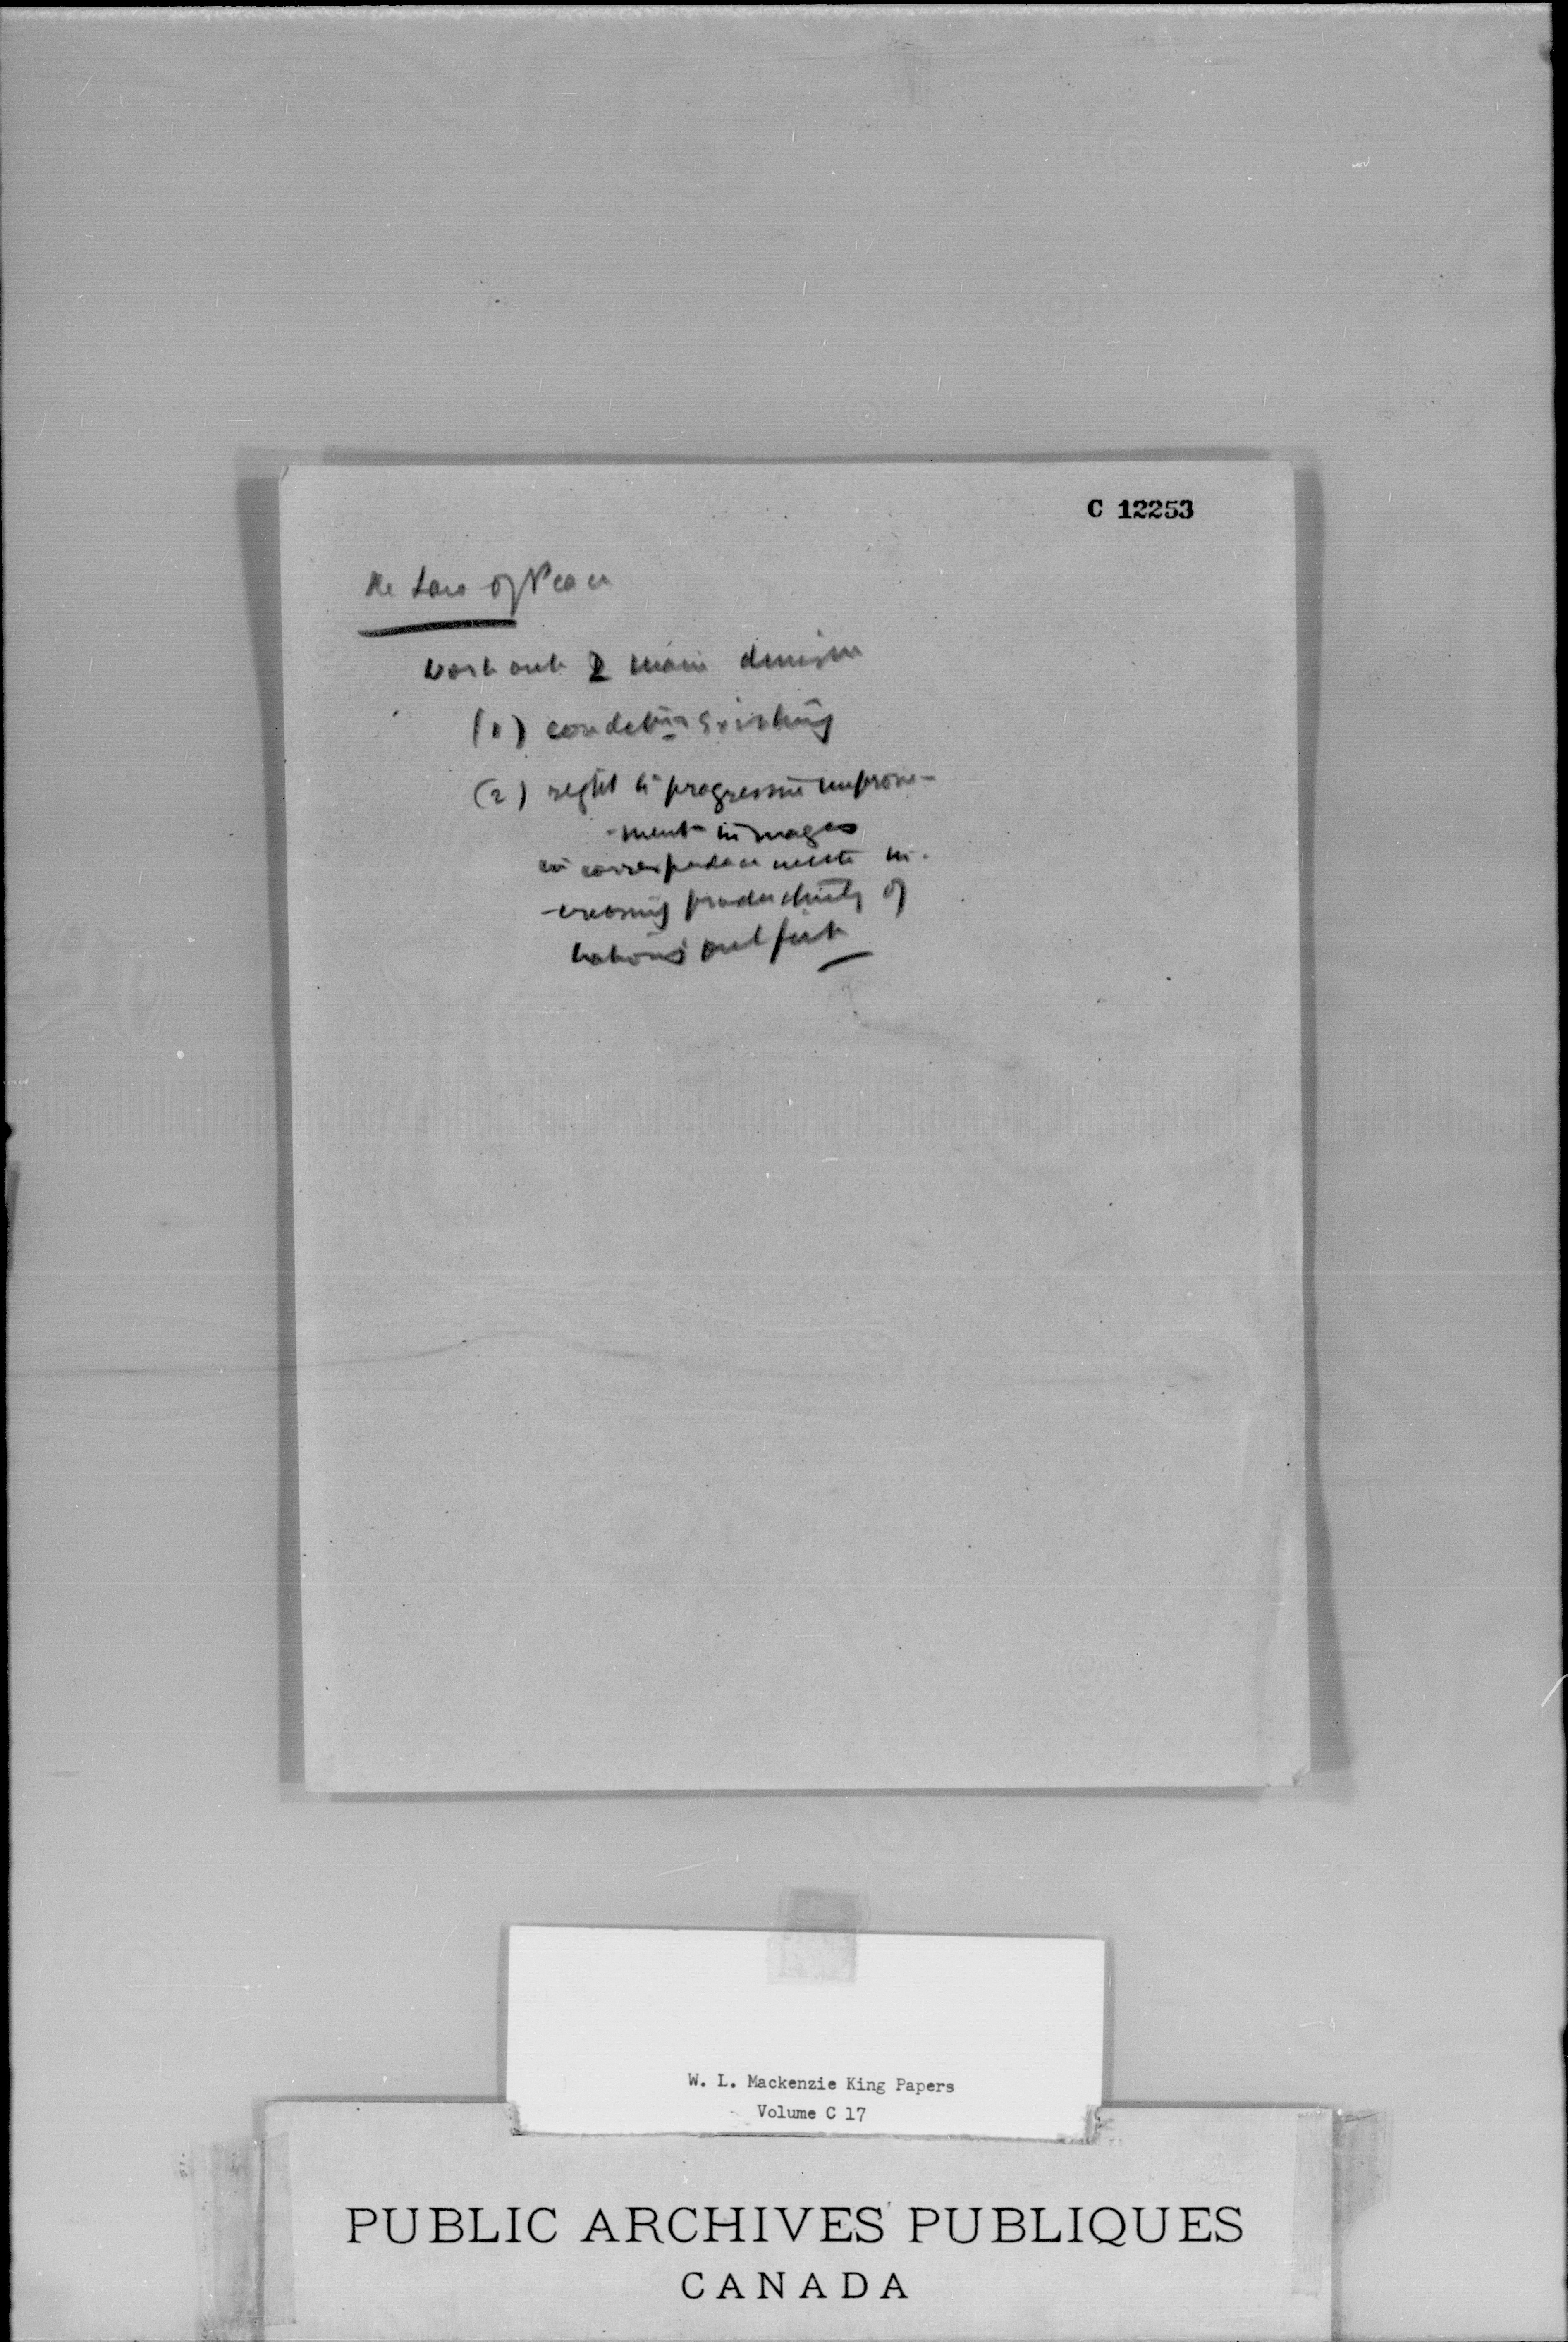 C 12253
Re Law of Peace
Work out 2 main division
(1) condition existing
(2) right to progressive improve-
-ment in wages
in correspondence with in-
-creasing productivity of
nation's output
W. L. Mackenzie King Papers
Volume C 17
PUBLIC ARCHIVES PUBLIQUES
CANADA